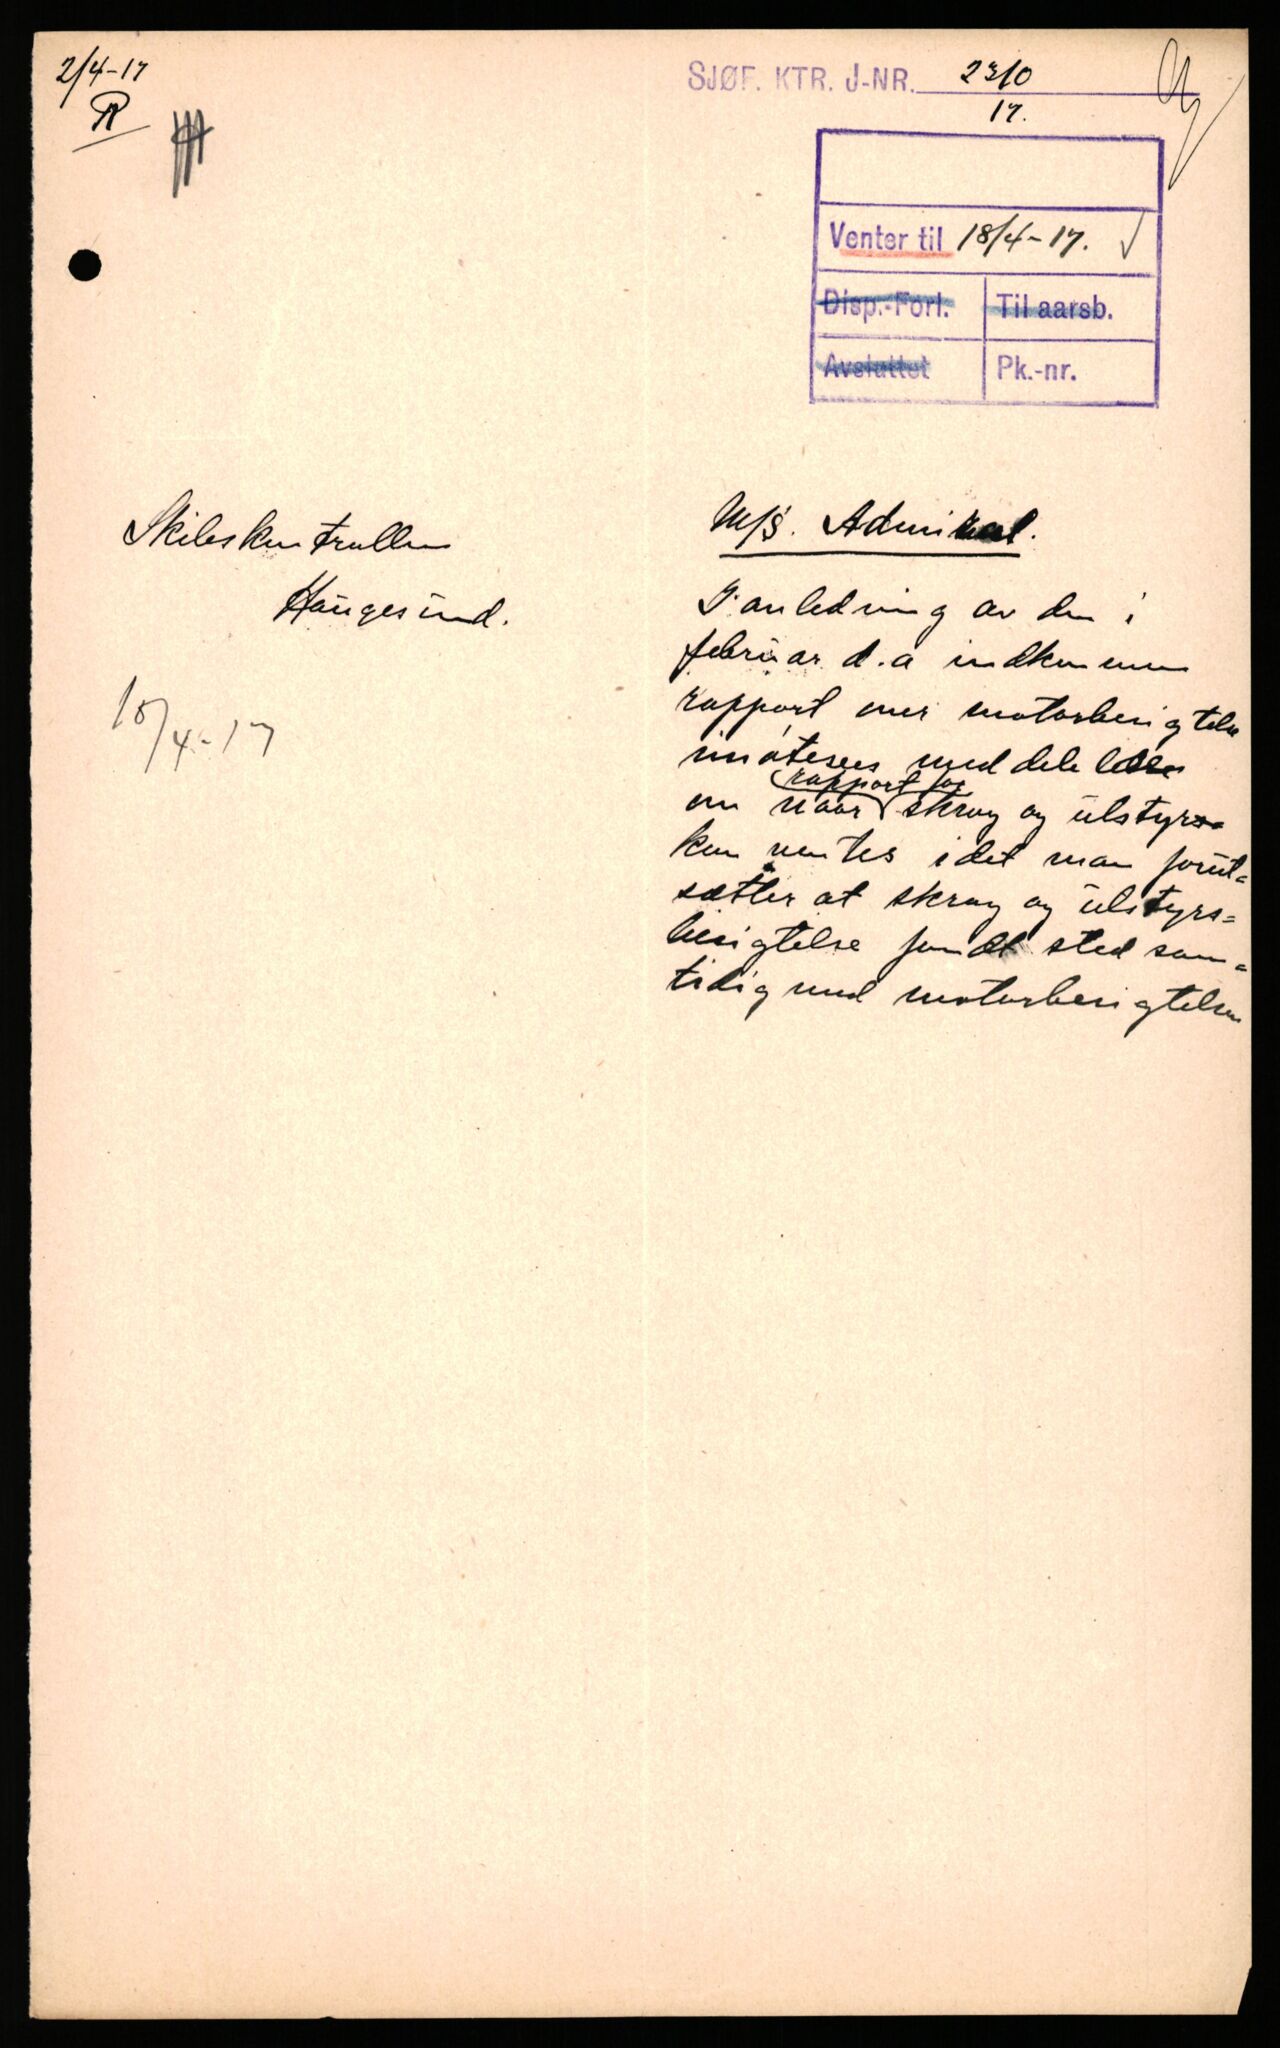 2/4-17
R
SJØF. KTR. J-NR. 2310
17.
Venter til 18/4-17.
Disp.-Forl. Til aarsb.
Avsluttet Pk.-nr.
Skibskontrollen
Haugesund.
18/4-17
M/S. Admiral.
I anledning av den i
februar d.a indkomne
rapport over motorbesigtelse
imøtesees meddelelse
rapport for
om naar skrog og utstyr
kan ventes idet man forut=
sætter at skrog og utstyrs=
besigtelse fandt sted sam=
tidig med motorbesigtelsen